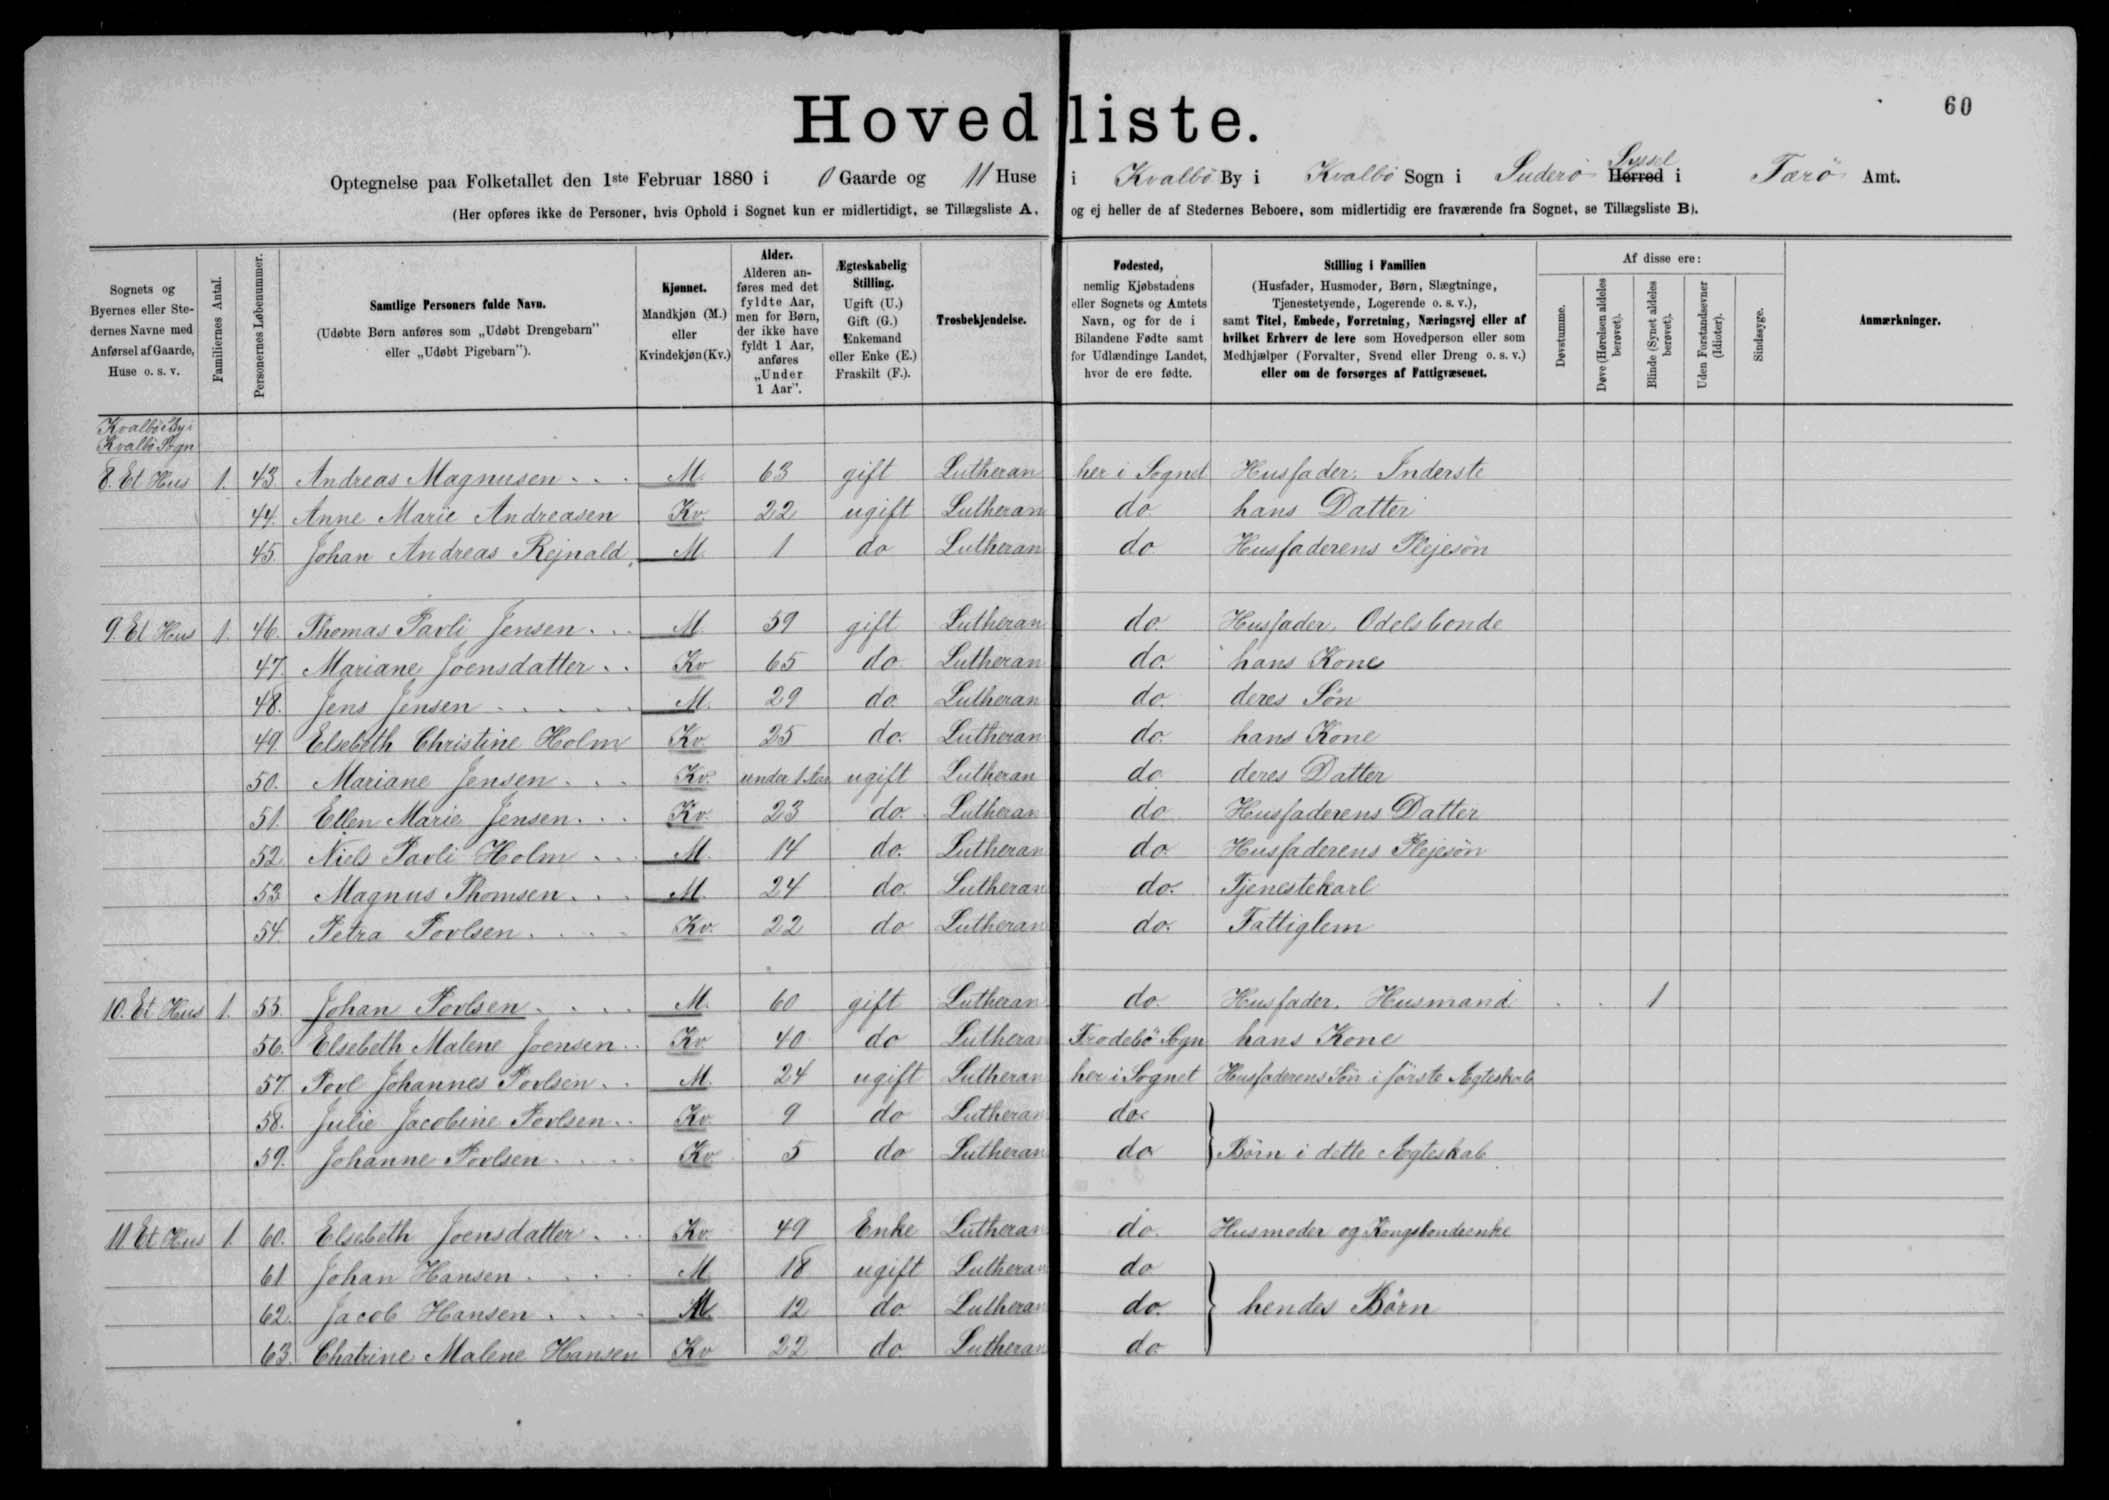 60
Hovedliste.
Optegnelse paa Folketallet den 1ste Februar 1880 i 0 Gaarde og 11 Huse i Kvalbö By i Kvalbö Sogn i Suderö Herred Syssel i Færö Amt.
(Her opføres ikke de Personer, hvis Ophold i Sognet kun er midlertidigt, se Tillægsliste A, og ej heller de af Stedernes Beboere, som midlertidig ere fraværende fra Sognet, se Tillægsliste B).
Sognets og Byernes eller Stedernes Navne med Anførsel af Gaarde, Huse o. s. v.
Familiernes Antal.
Personernes Løbenummer.
Samtlige Personers fulde Navn.
(Udøbte Børn anføres som „Udøbt Drengebarn" eller „Udøbt Pigebarn").
Kjønnet.
Mandkjøn (M.) eller Kvindekjøn (Kv.)
Alder.
Alderen anføres med det fyldte Aar, men for Børn, der ikke have fyldt 1 Aar, anføres „Under 1 Aar".
Ægteskabelig Stilling.
Ugift (U.) Gift (G.) Enkemand eller Enke (E.) Fraskilt (F.).
Trosbekjendelse.
Fødested,
nemlig Kjøbstadens eller Sognets og Amtets Navn, og for de i Bilandene Fødte samt for Udlændinge Landet, hvor de ere fødte.
Stilling i Familien
(Husfader, Husmoder, Børn, Slægtninge, Tjenestetyende, Logerende o. s. v.),
samt Titel, Embede, Forretning, Næringsvej eller af hvilket Erhverv de leve som Hovedperson eller som Medhjælper (Forvalter, Svend eller Dreng o. s. v.) eller om de forsørges af Fattigvæsenet.
Af disse ere:
Døvstumme.
Døve (Hørelsen aldeles berøvet).
Blinde (Synet aldeles berøvet).
Uden Forstandsevner (Idioter).
Sindssyge.
Anmærkninger.
Kvalbö By i
Kvalbö Sogn
8. Et Hus 1. 43. Andreas Magnusen M. 63 gift Lutheran her i Sognet Husfader, Inderste
44. Anne Marie Andreasen Kv. 22 ugift Lutheran do hans Datter
45. Johan Andreas Rejnald, M. 1 do Lutheran do Husfaderens Plejesön
9. Et Hus 1. 46. Thomas Pavli Jensen M. 59 gift Lutheran do. Husfader, Odelsbonde
47. Mariane Joensdatter Kv 65 do. Lutheran do. hans Kone
48. Jens Jensen M. 29 do. Lutheran do. deres Sön
49. Elsebeth Christine Holm Kv. 25 do. Lutheran do. hans Kone
50. Mariane Jensen Kv. under 1 Aar ugift Lutheran do deres Datter
51. Ellen Marie Jensen Kv. 23 do. Lutheran do Husfaderens Datter
52 Niels Pavli Holm M. 14 do. Lutheran do. Husfaderens Plejesön
53 Magnus Thomsen M. 24 do. Lutheran do. Tjenestekarl
54. Petra Povlsen Kv. 22 do Lutheran do. Fattiglem
10. Et Hus 1. 55. Johan Povlsen M. 60 gift Lutheran do. Husfader. Husmand 1
56. Elsebeth Malene Joensen Kv 40 do Lutheran Frodebö Sogn hans Kone
57 Povl Johannes Povlsen M. 24 ugift Lutheran her i Sognet Husfaderens Sön i förste Ægteskab
58. Julie Jacobine Povlsen Kv. 9 do Lutheran do.
59. Johanne Povlsen Kv 5 do Lutheran do Börn i dette Ægteskab
11. Et Hus 1 60. Elsebeth Joensdatter Kv. 49 Enke Lutheran do. Husmoder og Kongsbondeenke
61 Johan Hansen M. 18 ugift Lutheran do
62. Jacob Hansen M. 12 do. Lutheran do. hendes Börn
63. Chatrine Malene Hansen Kv 22 do. Lutheran do